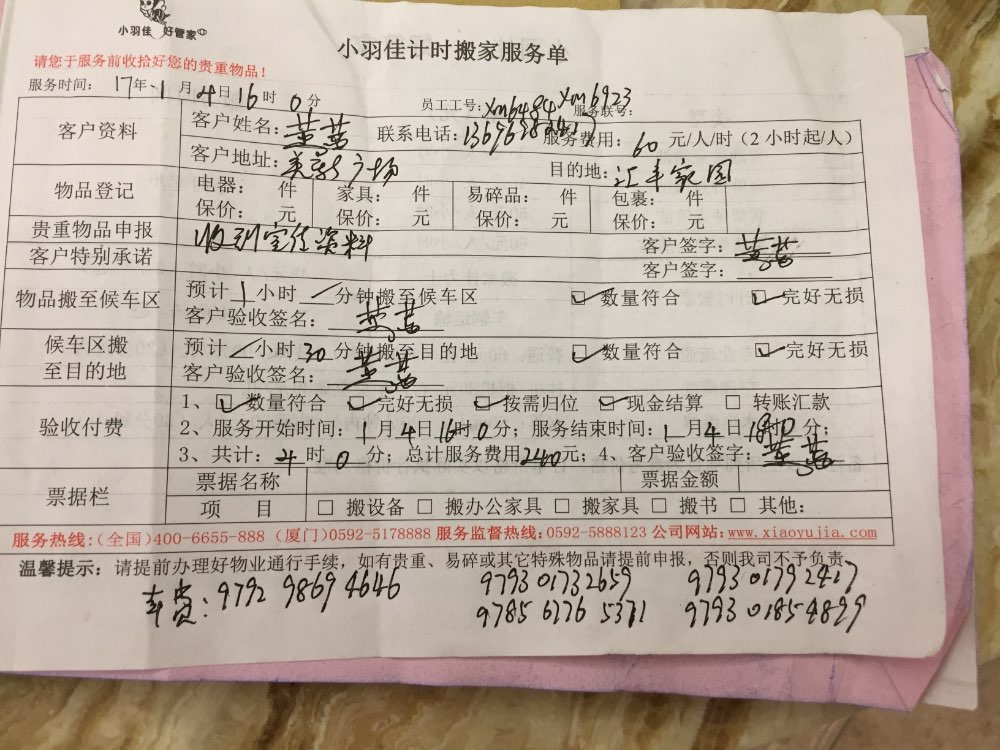 小羽佳 好管家
小羽佳计时搬家服务单
请您于服务前收拾好您的贵重物品！
服务时间： 17年 1 月 4 日 16 时 0 分 员工工号：xm6484 xm6923 服务联号：
客户资料 客户姓名： 联系电话： 服务费用：60 元/人/时（2 小时起/人）
客户地址： 广场 目的地：汇丰家园
物品登记 电器： 件 家具： 件 易碎品： 件 包裹： 件
保价： 元 保价： 元 保价： 元 保价： 元
贵重物品申报 收到宣传资料 客户签字：
客户特别承诺 客户签字：
物品搬至候车区 预计 1 小时 / 分钟搬至候车区 数量符合 完好无损
客户验收签名：
候车区搬至目的地 预计 / 小时 30 分钟搬至目的地 数量符合 完好无损
客户验收签名：
验收付费 1、 数量符合 完好无损 按需归位 现金结算 转账汇款
2、服务开始时间：1 月 4 日 16 时 0 分；服务结束时间：1 月 4 日 18 时 0 分；
3、共计： 时 0 分；总计服务费用 元；4、客户验收签字：
票据栏 票据名称 票据金额
项 目 搬设备 搬办公家具 搬家具 搬书 其他：
服务热线：（全国）400-6655-888（厦门）0592-5178888 服务监督热线：0592-5888123 公司网站：www.xiaoyujia.com
温馨提示：请提前办理好物业通行手续，如有贵重、易碎或其它特殊物品请提前申报，否则我司不予负责。
车费：9792 9869 4646 9793 0173 2659 9793 0179 2417
9785 6176 5371 9793 0185 4899